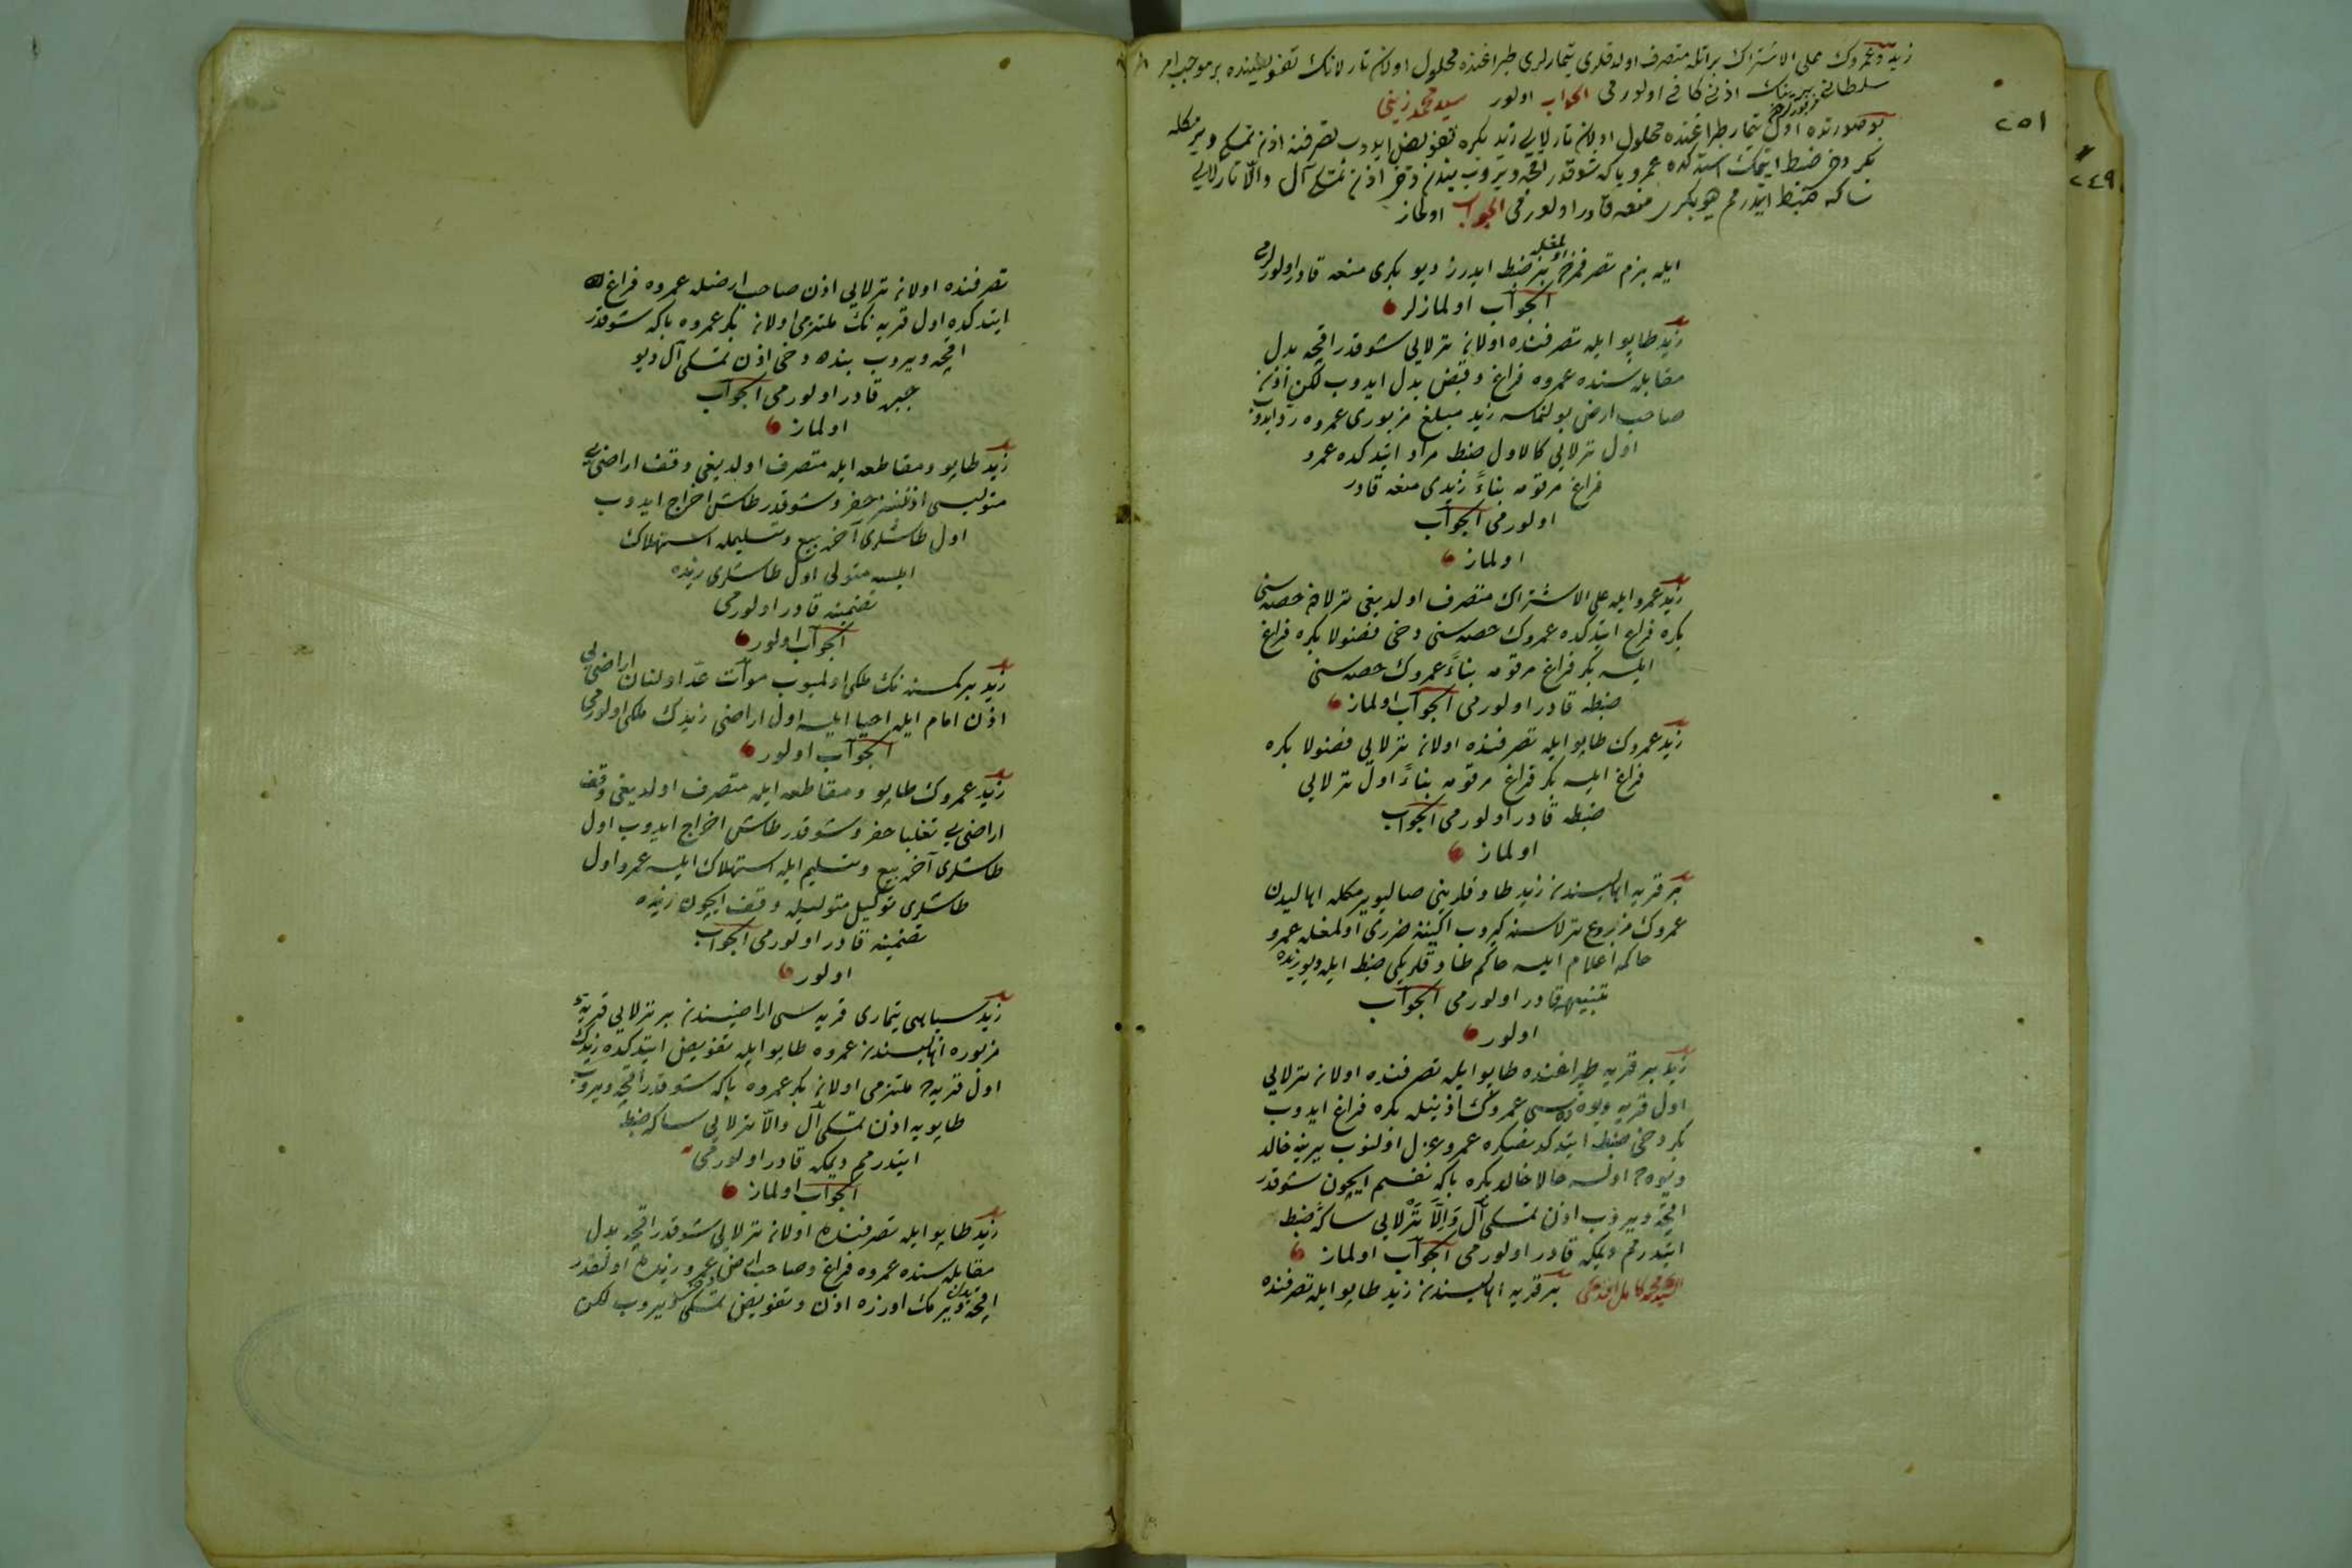 زيد وعمروك على الاشتراك براتله متصرف اولدقلرى تيمارلرى طپراغنده محلول اولان تارلانك تفويضنده بر موجب امر
سلطانى بيرينك اذنى كافى اولورمى الجواب اولور سيد محمد زينى
بو صورتده اول تيمار طپراغنده محلول اولان تارلايى زيد بكره تفويض ايدوب تصرفنه اذن تمسكى ويرمكله
بكر دخى ضبط ايتمك استدكده عمرو باكه شوقدر اقچه ويروب بندن دخى اذن تمسكى آل والا تارلايى
ساكه ضبط ايتدرمم ديو بكرى منعه قادر اولورمى الجواب اولماز
٢٥١
٢٤٩
ايله بزم تصرفمزده اولمغله بز ضبط ايدرز ديو بكرى منعه قادر اولورلرمى
الجواب اولمازلر
زيد طاپو ايله تصرفنده اولان ترلايى شوقدر اقچه بدل
مقابله سنده عمروه فراغ وقبض بدل ايدوب لكن اذن
صاحب ارض بولنماسه زيد مبلغ مزبورى عمروه رد ايدوب
اول ترلايى كالاول ضبط مراد ايتدكده عمرو
فراغ مرقومه بناءً زيدى منعه قادر
اولورمى الجواب
اولماز
زيد عمرو ايله على الاشتراك متصرف اولديغى ترلاده حصه سنى
بكره فراغ ايتدكده عمروك حصه سنى دخى فضولا بكره فراغ
ايلسه بكر فراغ مرقومه بناءً عمروك حصه سنى
ضبطه قادر اولورمى الجواب اولماز
زيد عمروك طاپو ايله تصرفنده اولان ترلايى فضولا بكره
فراغ ايلسه بكر فراغ مرقومه بناءً اول ترلايى
ضبطه قادر اولورمى الجواب
اولماز
بر قريه اهاليسندن زيد طاوقلرينى صاليويرمكله اهاليدن
عمروك مزروع ترلاسنه كيروب اكيننه ضررى اولمغله عمرو
حاكمه اعلام ايلسه حاكم طاوقلريكى ضبط ايله ديو زيده
تنبيهه قادر اولورمى الجواب
اولور
زيد بر قريه طپراغنده طاپو ايله تصرفنده اولان ترلايى
اول قريه ويوده سى عمروك اذنيله بكره فراغ ايدوب
بكر دخى ضبط ايتدكدنصكره عمرو عزل اولنوب يرينه خالد
ويوده اولسه حالا خالد بكره باكه نفسم ايچون شوقدر
اقچه ويروب اذن تمسكى آل والا ترلايى ساكه ضبط
ايتدرمم ديمكه قادر اولورمى الجواب اولماز
السيد محمد كامل افندى بر قريه اهاليسندن زيد طاپو ايله تصرفنده
تصرفنده اولان ترلايى اذن صاحب ارضله عمروه فراغ
ايتدكده اول قريه نك ملتزمى اولان بكر عمروه باكه شوقدر
اقچه ويروب بنده دخى اذن تمسكى آل ديو
جبره قادر اولورمى الجواب
اولماز
زيد طاپو ومقاطعه ايله متصرف اولديغى وقف اراضى يى
متوليسى اذننسز حفر وشوقدر طاش اخراج ايدوب
اول طاشلرى آخره بيع وتسليمله استهلاك
ايلسه متولى اول طاشلرى زيده
تضمينه قادر اولورمى
الجواب اولور
زيد بر كمسنه نك ملكى اولميوب موات عد اولنان اراضى يى
اذن امام ايله احيا ايلسه اول اراضى زيدك ملكى اولورمى
الجواب اولور
زيد عمروك طاپو ومقاطعه ايله متصرف اولديغى وقف
اراضى يى تغلبا حفر وشوقدر طاش اخراج ايدوب اول
طاشلرى آخره بيع وتسليم ايله استهلاك ايلسه عمرو اول
طاشلرى توكيل متوليله وقف ايچون زيده
تضمينه قادر اولورمى الجواب
اولور
زيد سپاهى تيمارى قريه سى اراضيسندن بر ترلايى قريه
مزبوره اهاليسندن عمروه طاپو ايله تفويض ايتدكده زيدك
اول قريه ملتزمى اولان بكر عمروه باكه شوقدر اقچه ويروب
طاپويه اذن تمسكى آل والا ترلايى ساكه ضبط
ايتدرمم ديمكه قادر اولورمى
الجواب اولماز
زيد طاپو ايله تصرفنده اولان ترلايى شوقدر اقچه بدل
مقابله سنده عمروه فراغ وصاحب ارض دخى عمرو زيده اولقدر
اقچه بدل ويرمك اوزره اذن وتفويض تمسكى ويروب لكن